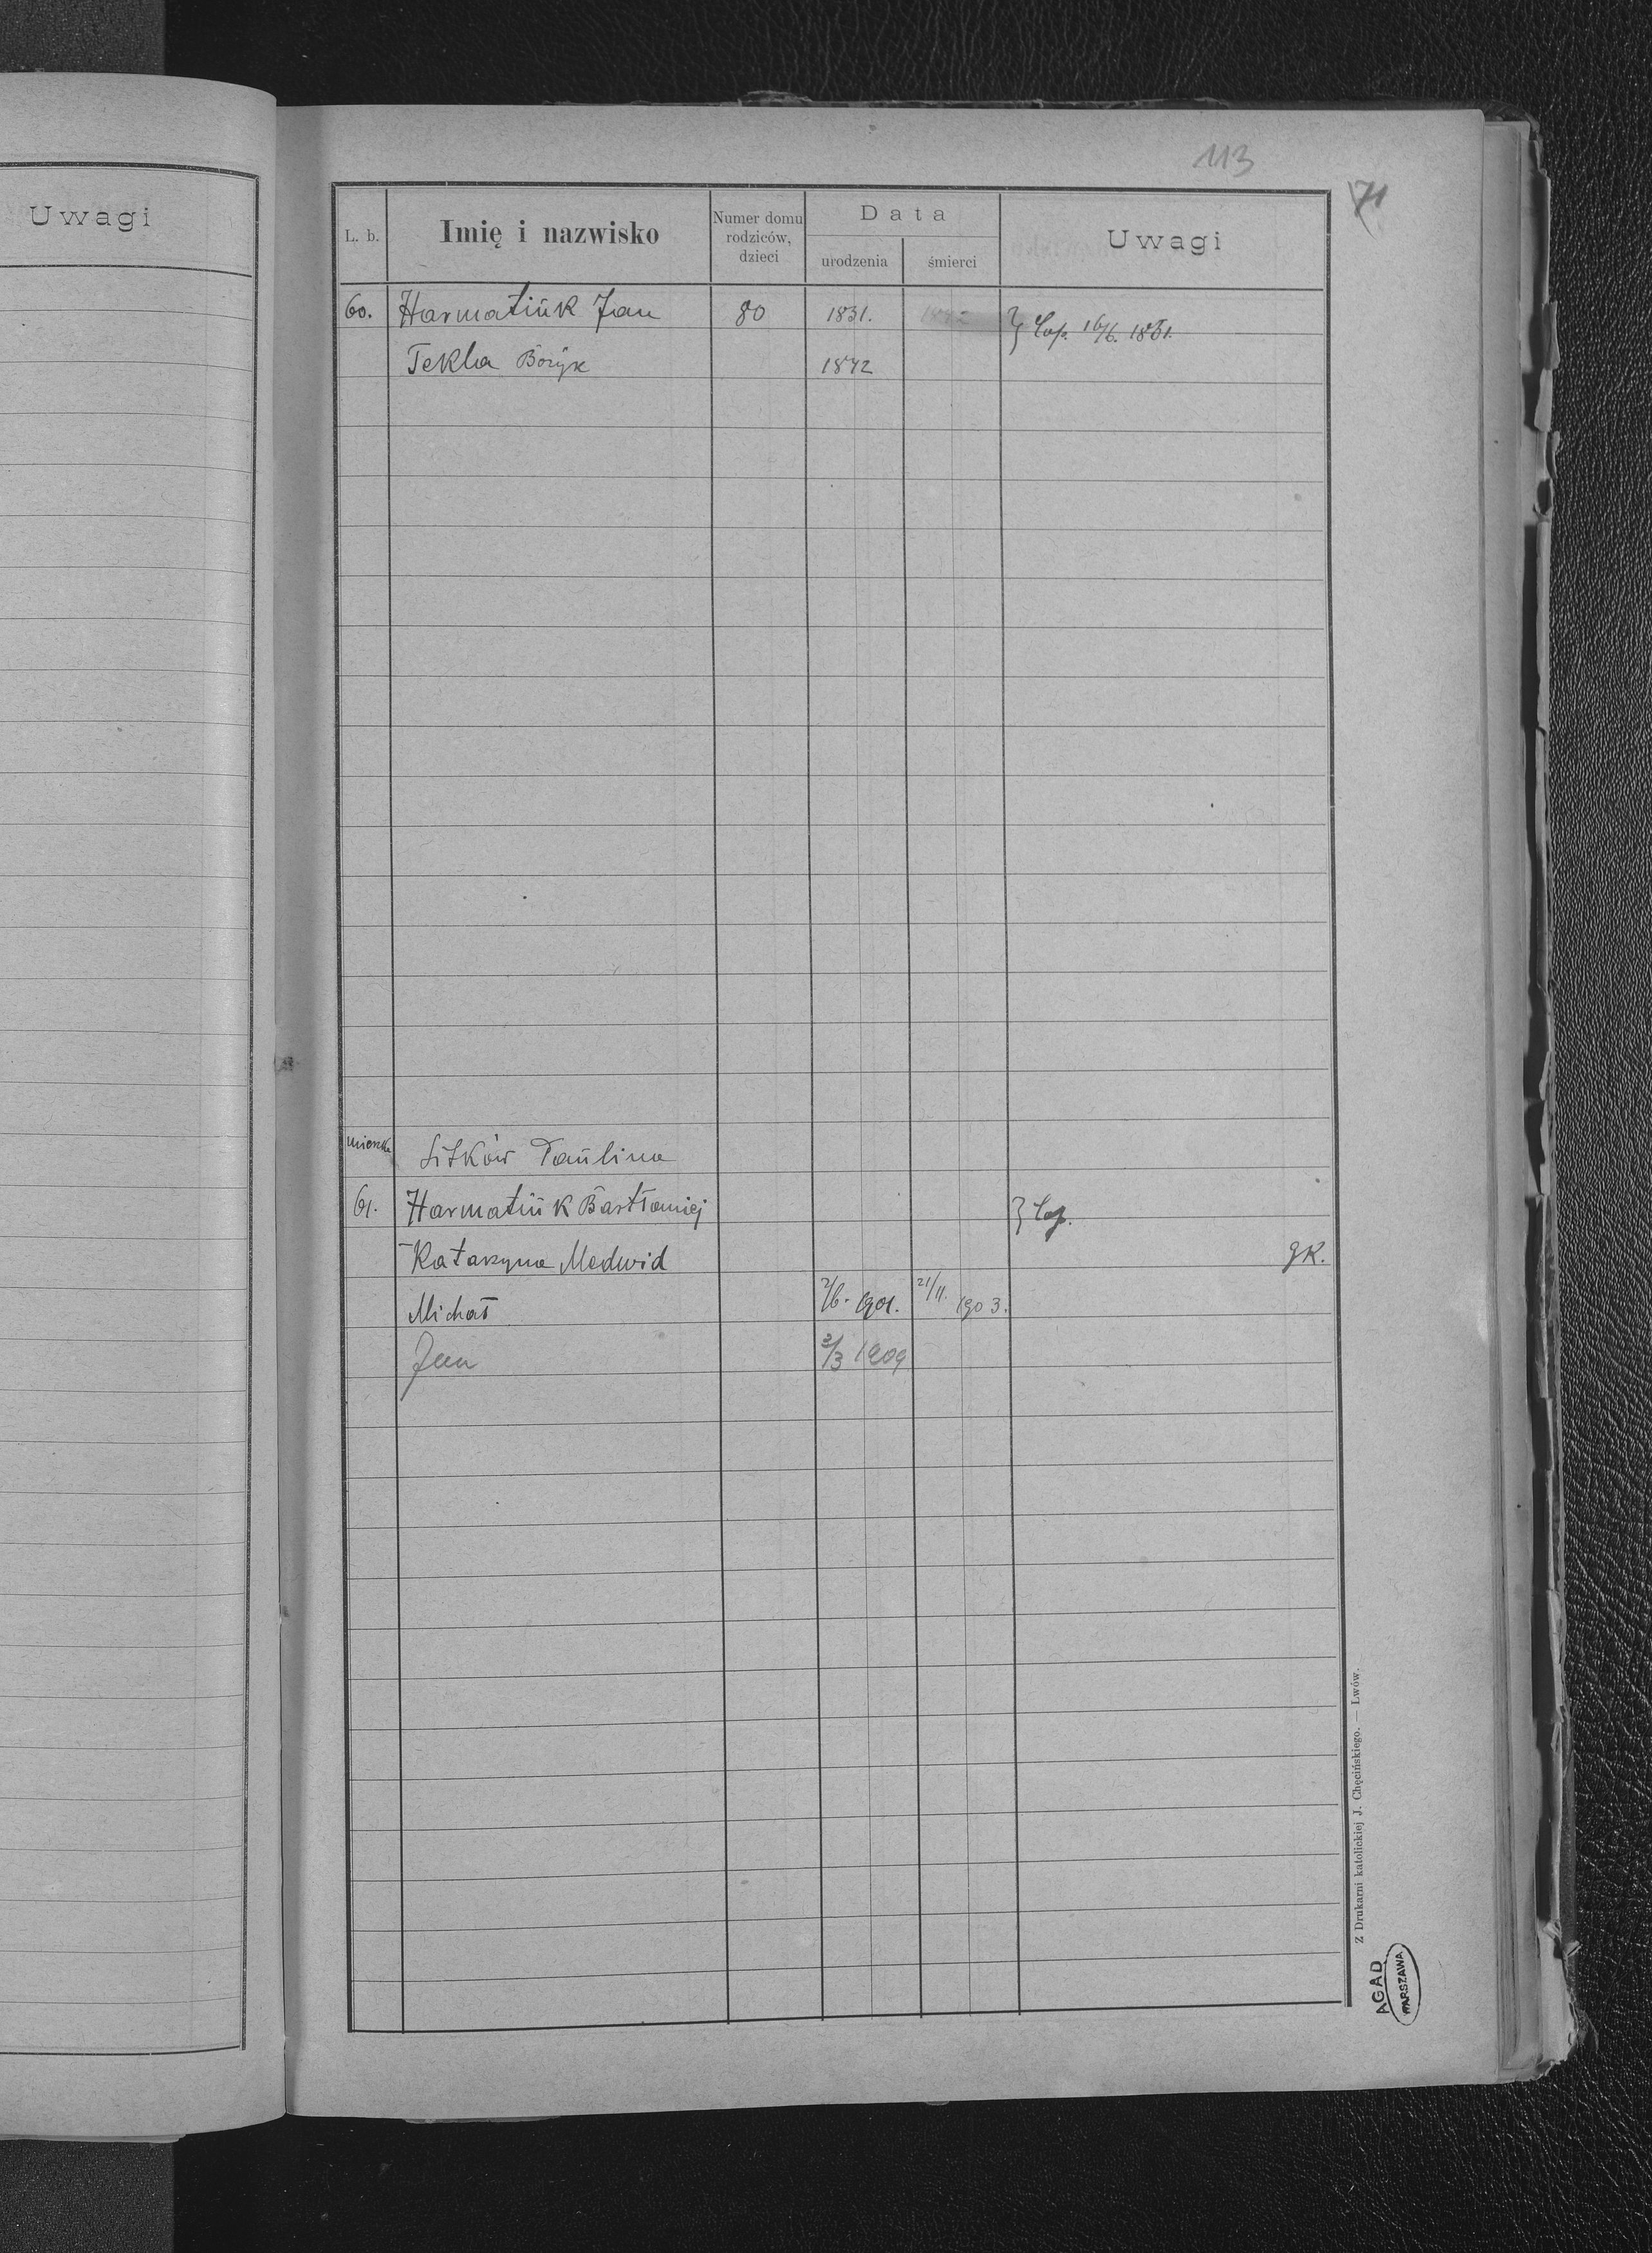 Uwagi
113
71
L. b. Imię i nazwisko Numer domu rodziców, dzieci Data urodzenia śmierci Uwagi
60. Harmatiŭk Jan 80 1831. } Cop. 16/6. 1861.
Tekla Bożyk 1842
Sitków Paŭlina
61. Harmatiŭk Bartłomiej } Cop.
Katarzyna Medwid gk.
Michał 2/6. 1901. 21/11. 1903.
Jan 2/3 1909
Z Drukarni katolickiej J. Chęcińskiego. — Lwów.
AGAD
WARSZAWA